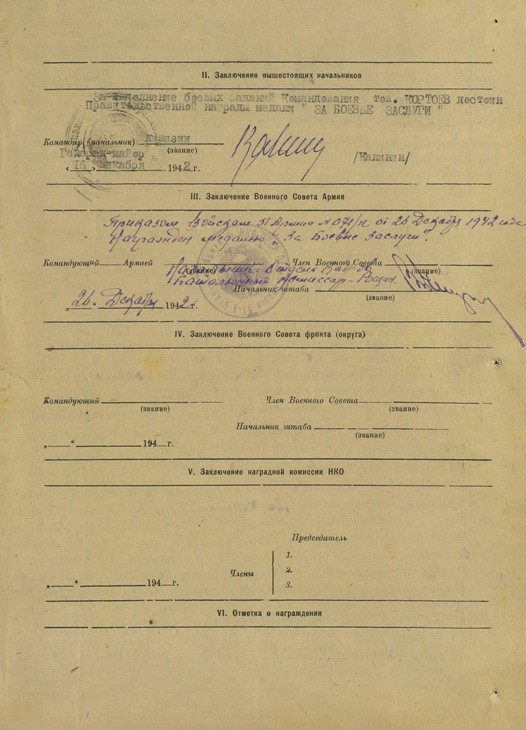 II. Заключение вышестоящих начальников
За выполнение боевых заданий Командования тов. ЧОРТОЕВ достоин
Правительственной награды медали " ЗА БОЕВЫЕ ЗАСЛУГИ "
Командир (начальник) дивизии
Генерал-майор (звание)
/Калинин/
„ 16 " декабря 1942 г.
III. Заключение Военного Совета Армии
Приказом Войскам Армии № от 26 Декабря 1942 года
Награжден медалью „За Боевые Заслуги".
Командующий Армией Член Военного Совета
(звание) (звание)
Начальник Отдела Кадров
Батальонный Комиссар
Начальник штаба
(звание)
„26" Декабря 1942 г.
IV. Заключение Военного Совета фронта (округа)
Командующий Член Военного Совета
(звание) (звание)
Начальник штаба
(звание)
„ " 194 г.
V. Заключение наградной комиссии НКО
Председатель
1.
Члены 2.
3.
„ " 194 г.
VI. Отметка о награждении